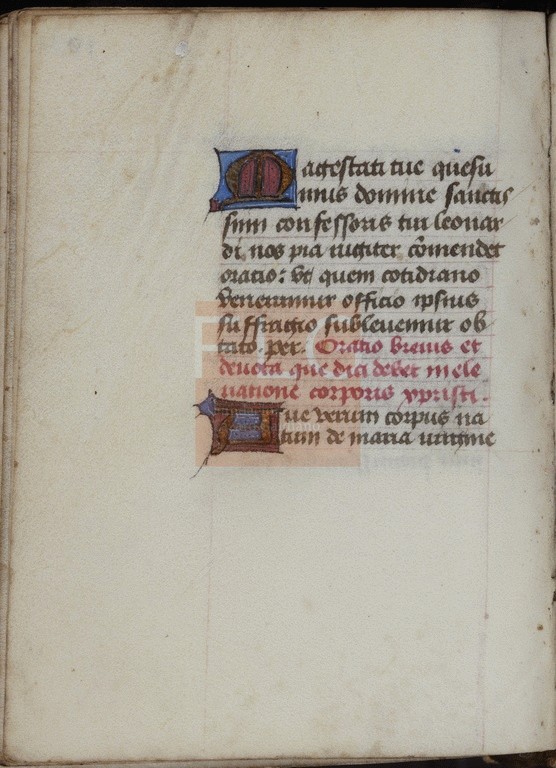 Magestati tue quesu
mus domine sanctis
simi confessoris tui leonar
di nos pia iugiter cõmendet
oratio: vt quem cotidiano
veneramur officio ipsius
suffragio subleuemur ob
tato. per. Oratio breuis et
deuota que dici debet in ele
uatione corporis xpristi.
Aue verum corpus na
tum de maria uirgine